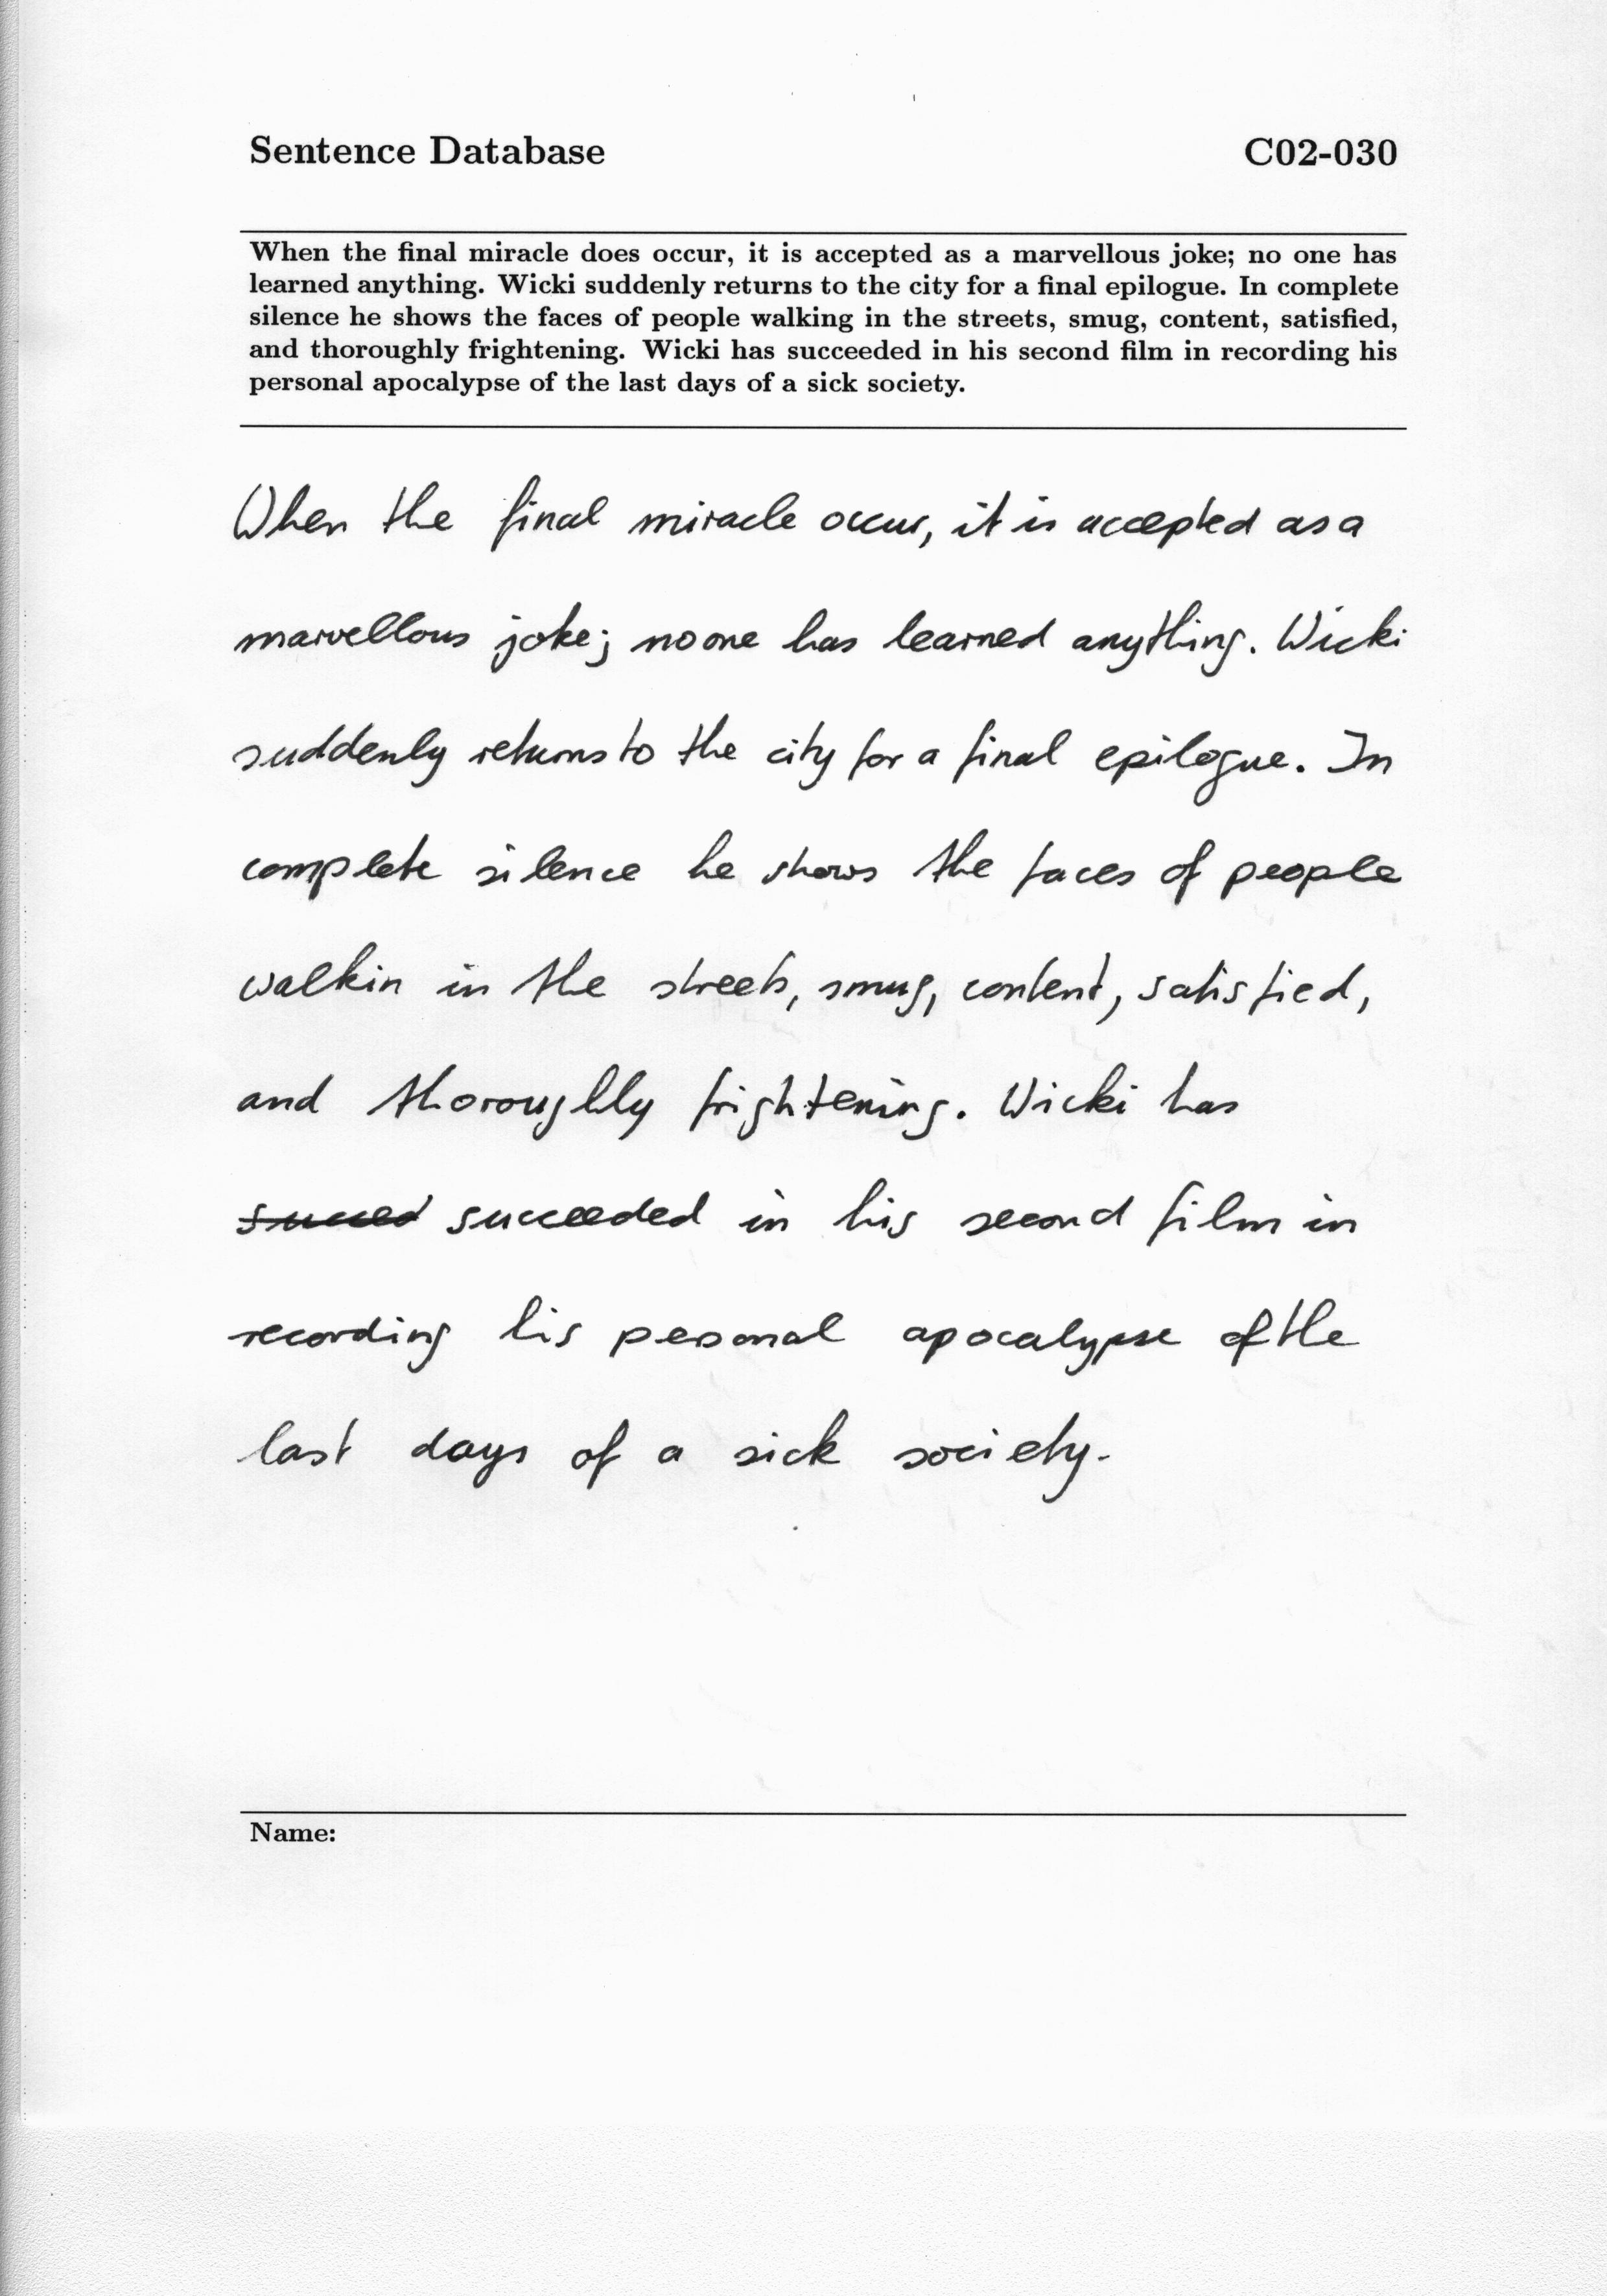 Sentence Database C02-030
When the final miracle does occur, it is accepted as a marvellous joke; no one has
learned anything. Wicki suddenly returns to the city for a final epilogue. In complete
silence he shows the faces of people walking in the streets, smug, content, satisfied,
and thoroughly frightening. Wicki has succeeded in his second film in recording his
personal apocalypse of the last days of a sick society.
When the final miracle occur, it is accepted as a
marvellous joke; no one has learned anything. Wicki
suddenly returns to the city for a final epilogue. In
complete silence he shows the faces of people
walkin in the streets, smug, content, satisfied,
and thoroughly frightening. Wicki has
succeeded in his second film in
recording his pesonal apocalypse of the
last days of a sick society.
Name: